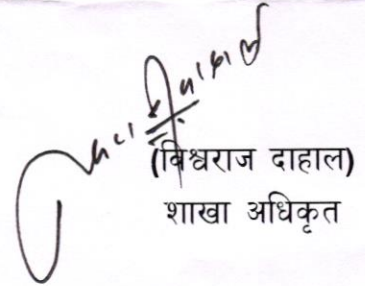 (बिश्वराज दाहाल)
शाखा अधिकृत